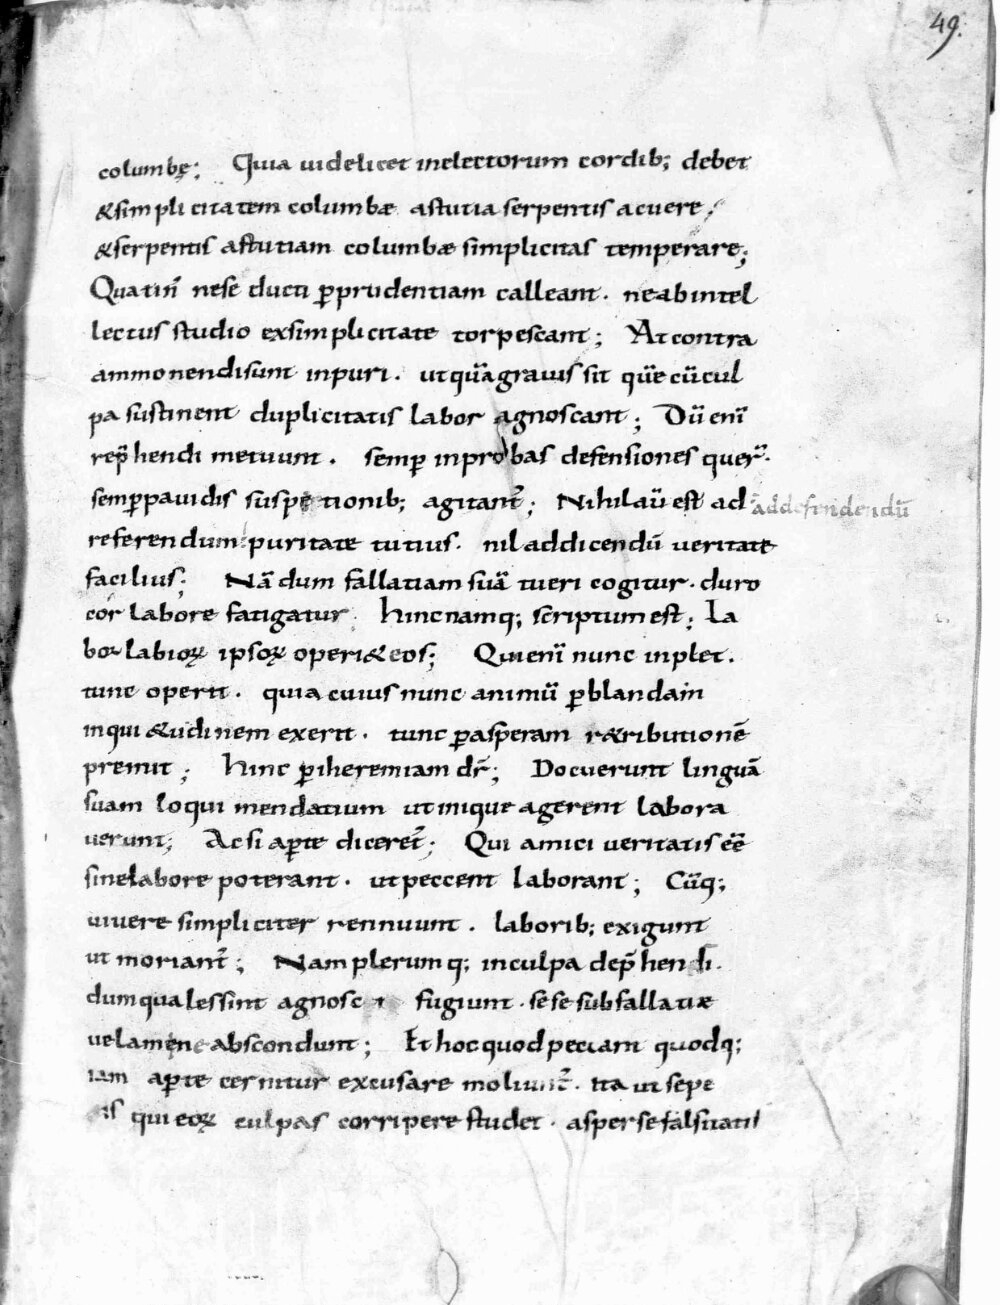 49.
columbę; Quia uidelicet inelectorum cordib; debet
&simplicitatem columbæ astutia serpentis acuere;
&serpentis astutiam columbæ simplicitas temperare;
Quatin̄ nese ducti ꝑprudentiam calleant. neabintel
lectus studio exsimplicitate torpescant; At contra
ammonendisunt inpuri. ut quā grauis sit quę cū cul
pa sustinent duplicitatis labor agnoscant; Dū enī
rep̄hendi metuunt. semꝑ inprobas defensiones quer̄.
semꝑpauidis suspetionib; agitant̄; Nihil aū est ad
ad defendendū
referendum puritate tutius. nil addicendū ueritate
facilius; Nā dum fallatiam suā tueri cogitur. duro
cor labore fatigatur. hinc namq; scriptum est; La
bor labioꝝ ipsoꝝ operi&eos; Qui enī nunc inplet.
tunc operit. quia cuius nunc animū ꝑblandam
inqui&udinem exerit. tunc ꝑasperam r&ributionē
premit; hinc ꝑiheremiam dr̄; Docuerunt linguā
suam loqui mendatium ut inique agerent labora
uerunt; Ac si aꝑte diceret̄; Qui amici ueritatis eē̄
sinelabore poterant. ut peccent laborant; Cūq;
uiuere simpliciter rennuunt. laborib; exigunt
ut moriant̄; Nam plerumq; inculpa dep̄hensi.
dum quales sint agnosci fugiunt. sese sub fallatiæ
uelamene abscondunt; Et hoc quod peccant quodq;
iam aꝑte cernitur excusare moliunt̄. ita ut sepe
is qui eoꝝ culpas corripere studet. asperse falsitatis